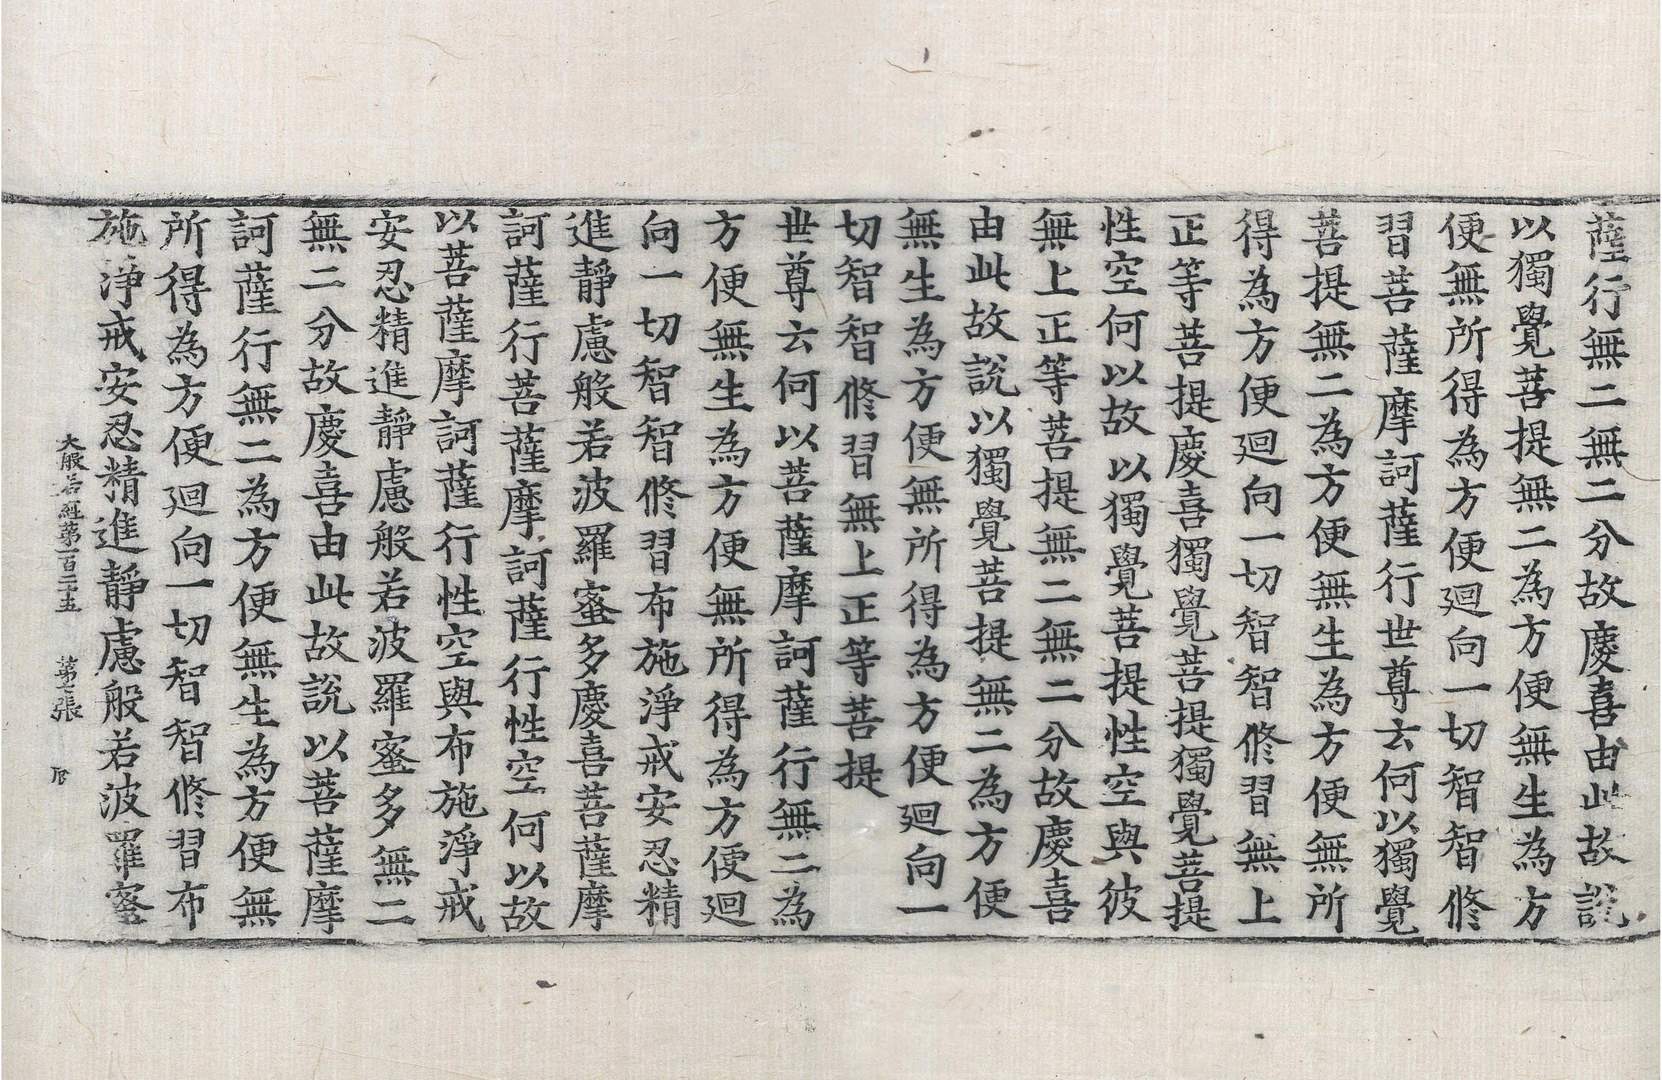 薩行無二無二分故慶喜由此故說
以獨覺菩提無二為方便無生為方
便無所得為方便迴向一切智智修
習菩薩摩訶薩行世尊云何以獨覺
菩提無二為方便無生為方便無所
得為方便迴向一切智智修習無上
正等菩提慶喜獨覺菩提獨覺菩提
性空何以故以獨覺菩提性空與彼
無上正等菩提無二無二分故慶喜
由此故說以獨覺菩提無二為方便
無生為方便無所得為方便迴向一
切智智修習無上正等菩提
世尊云何以菩薩摩訶薩行無二為
方便無生為方便無所得為方便迴
向一切智智修習布施淨戒安忍精
進靜慮般若波羅蜜多慶喜菩薩摩
訶薩行菩薩摩訶薩行性空何以故
以菩薩摩訶薩行性空與布施淨戒
安忍精進靜慮般若波羅蜜多無二
無二分故慶喜由此故說以菩薩摩
訶薩行無二為方便無生為方便無
所得為方便迴向一切智智修習布
施淨戒安忍精進靜慮般若波羅蜜
大般若經第一百二十五 第七張